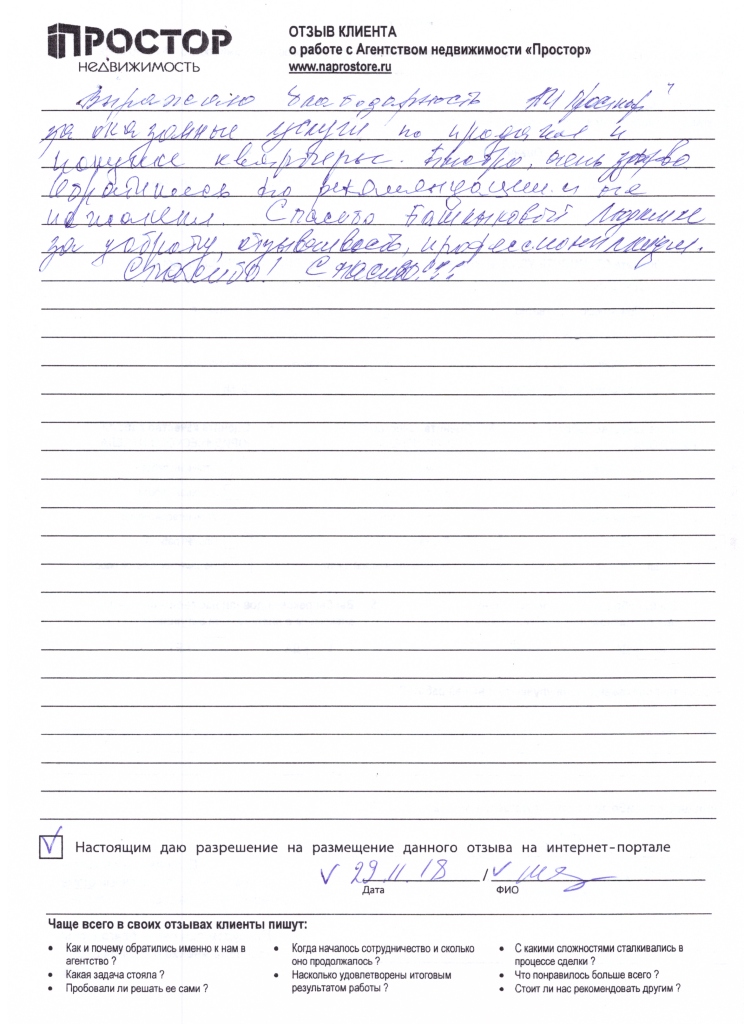 ПРОСТОР
недвижимость
ОТЗЫВ КЛИЕНТА
о работе с Агентством недвижимости «Простор»
www.naprostore.ru
Выражаю благодарность АН "Простор"
за оказанные услуги по продаже и
покупке квартиры. Быстро, очень здорово
Обратились по рекомендации и не
пожалели. Спасибо Башлыковой Людмиле
за доброту, отзывчивость, профессионализм.
Спасибо! Спасибо!!!
Настоящим даю разрешение на размещение данного отзыва на интернет-портале
29.11.18 /
Дата ФИО
Чаще всего в своих отзывах клиенты пишут:
• Как и почему обратились именно к нам в агентство ?
• Какая задача стояла ?
• Пробовали ли решать ее сами ?
• Когда началось сотрудничество и сколько оно продолжалось ?
• Насколько удовлетворены итоговым результатом работы ?
• С какими сложностями сталкивались в процессе сделки ?
• Что понравилось больше всего ?
• Стоит ли нас рекомендовать другим ?